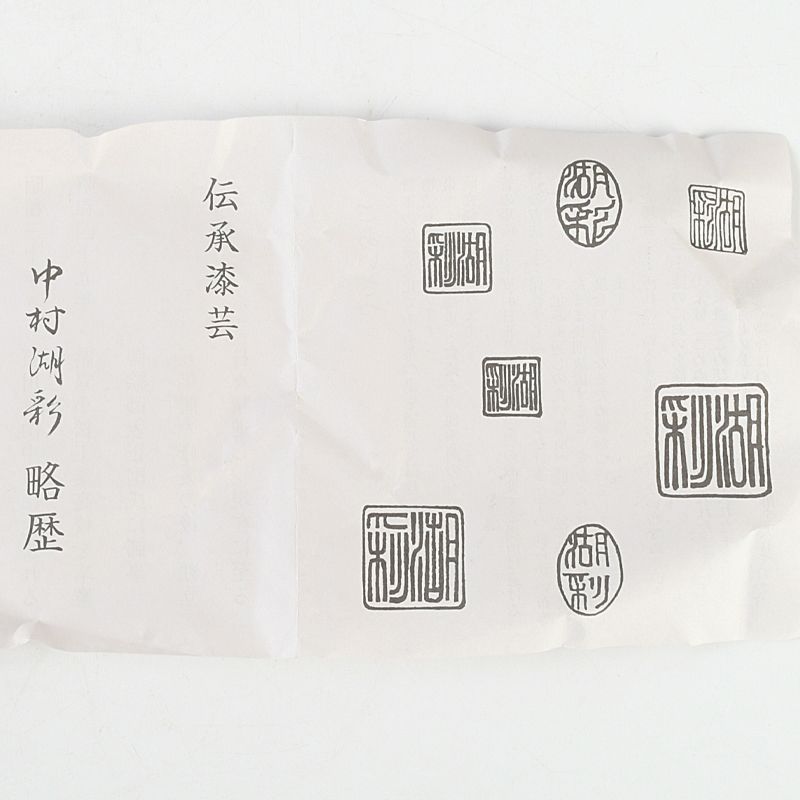 湖彩
湖彩
湖彩
湖彩
湖彩
湖彩
湖彩
伝承漆芸
中村湖彩 略歴